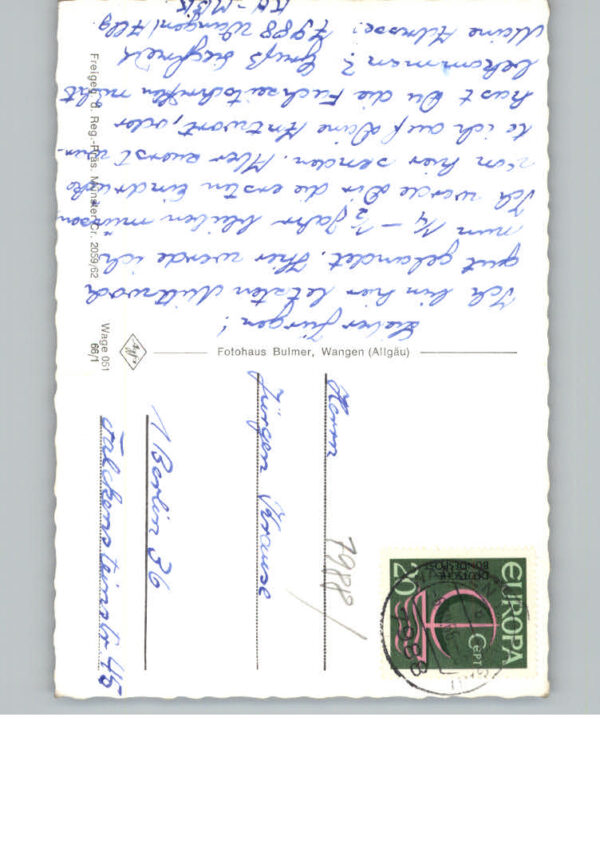 Lieber Jürgen!
Ich bin hier letzten Mittwoch
gut gelandet. Hier werde ich
nun 1/4 - 1/2 Jahr bleiben müssen
Ich werde Dir die ersten Eindrücke
von hier senden. Aber zuerst
te ich auf Deine Antwort, oder
hast Du die Fachzeitschriften nicht
bekommen? Gruß Siegfried
Meine Adresse: 7988 Wangen/Allg
Freigeg. d. Reg.-Präs. Münster Cr. 2059/62
Fotohaus Bulmer, Wangen (Allgäu)
Agfa
Wage 051
66/1
Herrn
Jürgen Krause
1 Berlin 36
Falckensteinstr 45
7988/
EUROPA
CEPT
20
DEUTSCHE
BUNDESPOST
7988